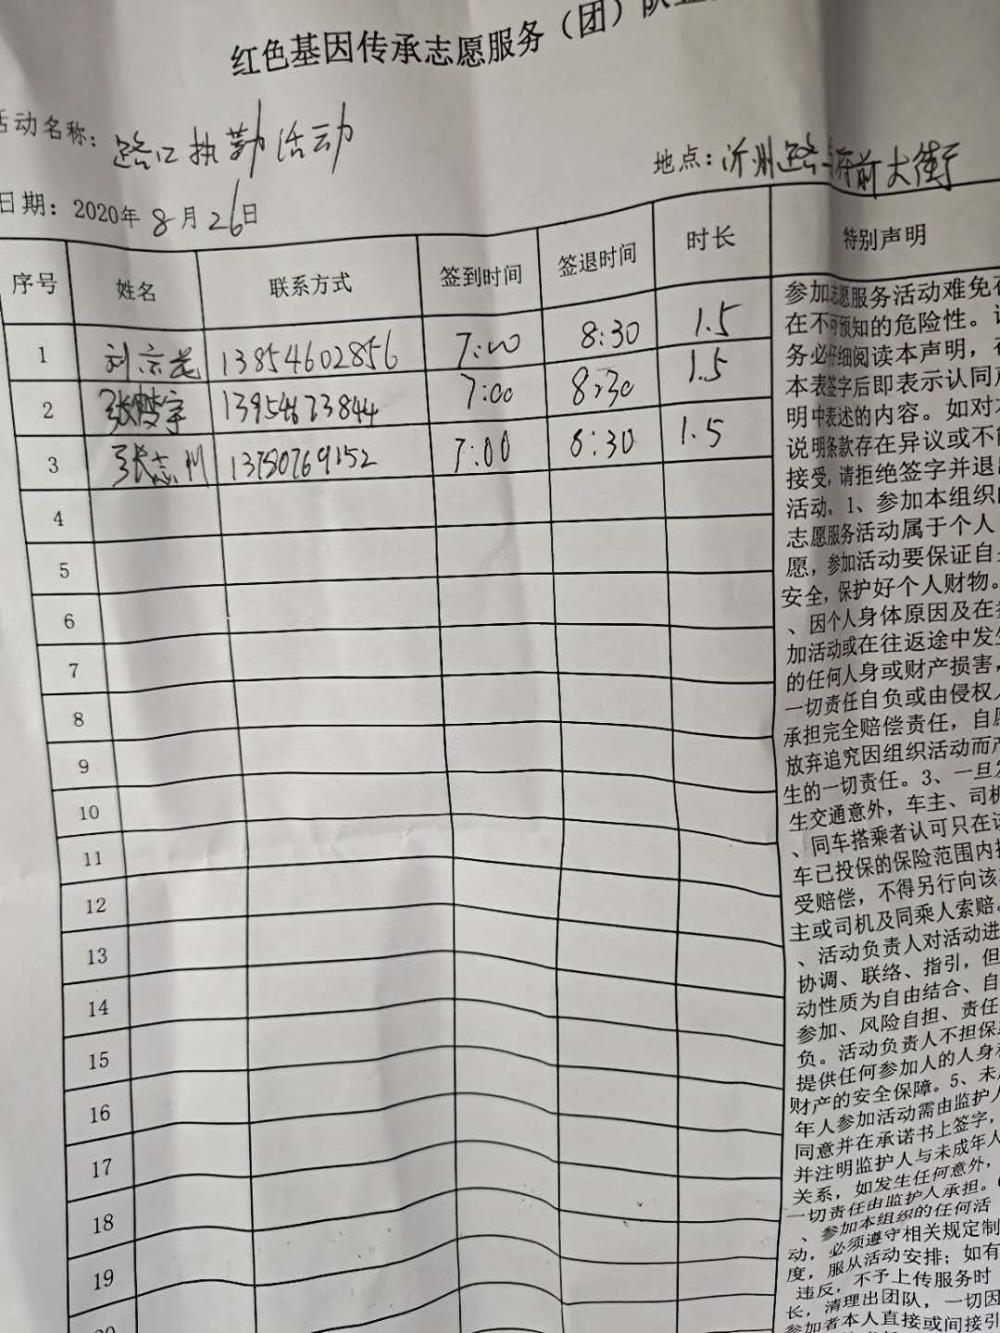 红色基因传承志愿服务（团）队
活动名称：路口执勤活动
地点：沂州路与府前大街
日期：2020年8月26日
序号 姓名 联系方式 签到时间 签退时间 时长 特别声明
1 刘宗花 13854602856 7:00 8:30 1.5
2 张 宇 13954673844 7:00 8:30 1.5
3 张志川 13780769152 7:00 8:30 1.5
4
5
6
7
8
9
10
11
12
13
14
15
16
17
18
19
20
参加志愿服务活动难免存
在不可预知的危险性。请
务必仔细阅读本声明，在
本表签字后即表示认同声
明中表述的内容。如对本
说明条款存在异议或不能
接受，请拒绝签字并退出
活动。1、参加本组织的
志愿服务活动属于个人自
愿，参加活动要保证自身
安全，保护好个人财物。
、因个人身体原因及在参
加活动或在往返途中发生
的任何人身或财产损害，
一切责任自负或由侵权人
承担完全赔偿责任，自愿
放弃追究因组织活动而产
生的一切责任。3、一旦发
生交通意外，车主、司机
、同车搭乘者认可只在该
车已投保的保险范围内接
受赔偿，不得另行向该车
主或司机及同乘人索赔。
、活动负责人对活动进
协调、联络、指引，但
动性质为自由结合、自
参加、风险自担、责任
负。活动负责人不担保
提供任何参加人的人身和
财产的安全保障。5、未成
年人参加活动需由监护人
同意并在承诺书上签字，
并注明监护人与未成年人
关系，如发生任何意外，
一切责任由监护人承担。6
、参加本组织的任何活
动，必须遵守相关规定制
度，服从活动安排；如有
违反，不予上传服务时
长，清理出团队，一切因
参加者本人直接或间接引